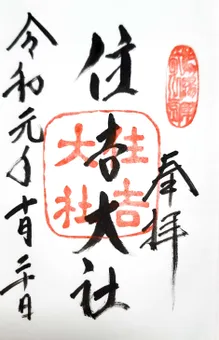 奉拝
住吉大社
住吉大社
令和元年十月二十日